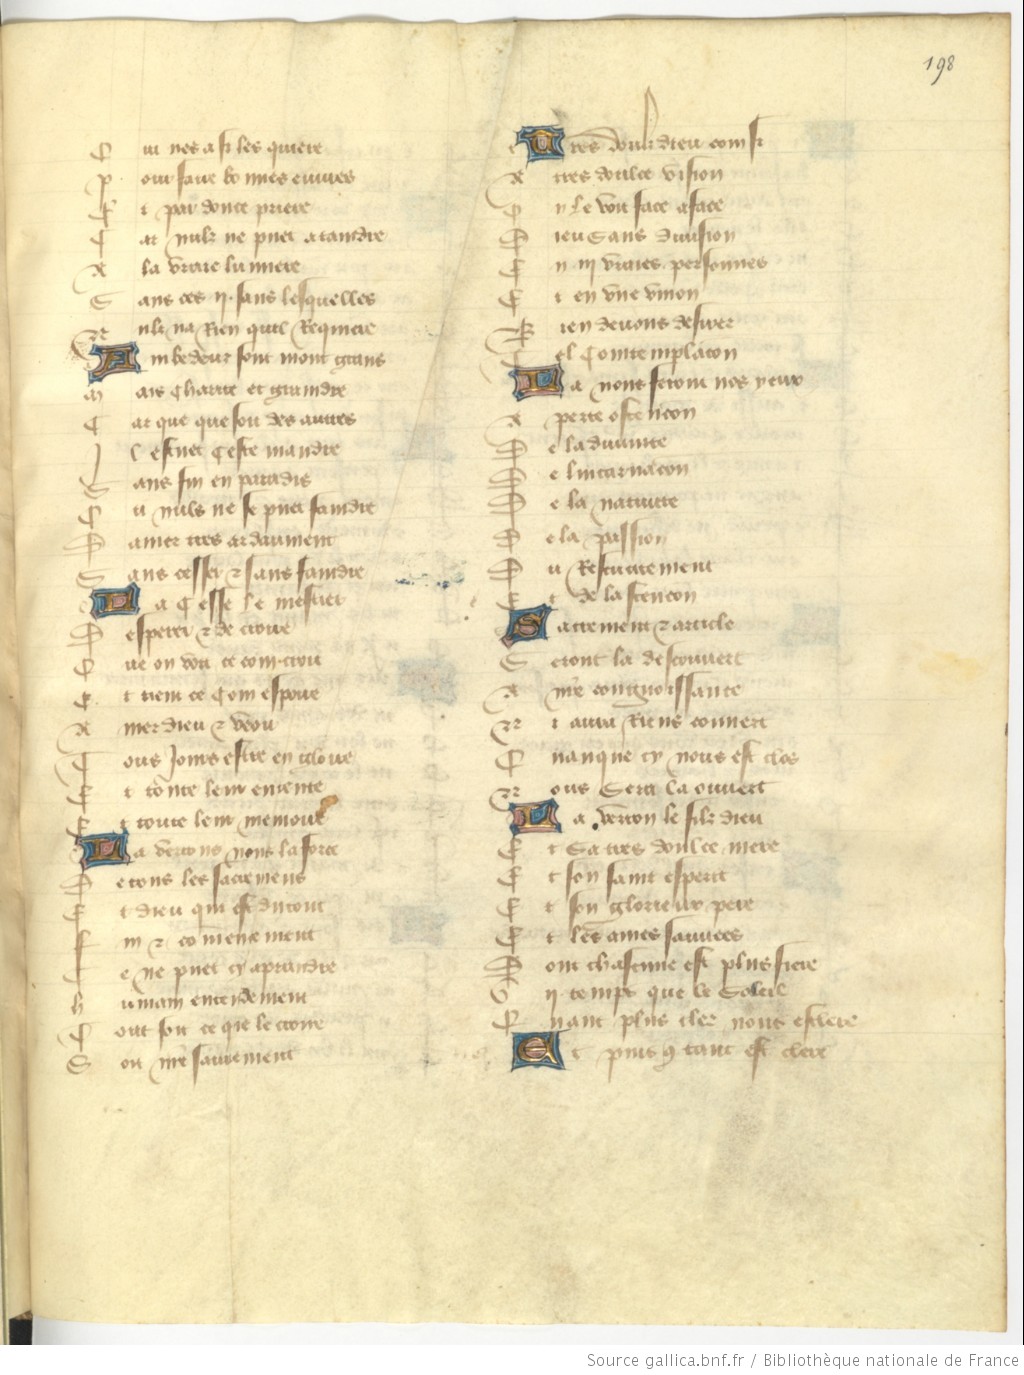 198
Qui nes a si les quiere
Pour faire bonnes euures
Et par donce priere
Car nulz ne puet ataindre
A la vraie lumiere
Sans ces .ij. sans lesquelles
Nulz na Rien quil Requiere
Ambedeux sont mont grans
Mais Charite et graindre
Car que que soit des autres
Il estuet Ceste maindre
Sans fin en paradis
Ou nuls ne se puet faindre
Damer tres ardaument
Sans cesser et sans faindre
La Cesse le mestier
Desperer et de croire
Que on voit ce com croit
Et tient ce Com espoire
Amer dieu et veoir
Tous Jours estre en gloire
Et toute leur entente
Et toute leur memoire
La verrons nous la force
De tous les sacremens
Et dieu qui est du tout
Fin et commencment
Ce ne puet cy aprandre
Humain entendement
Tout soit ce que le croire
Soit nostre sauuement
Tres doulz dieu com si
A tres doulce vision
On le voit face a face
Dieu Sans diuision
En .iij. vraies personnes
Et en vne vnion
Bien deuons desirer
Tel Contemplacon
La nous feront nos yeux
Aperte ostencon
De la diuinite
De lincarnacon
De la natiuite
De la passion
Du Resucitement
Et de lascencon
Sacrement et article
Seront la descouuert
A nostre congnoissance
Ni aura Riens couuert
Quanque cy nous est clos
Nous Sera la ouuert
La verron le filz dieu
Et Sa tres doulce mere
Et son saint esperit
Et son glorieux pere
Et les ames sauuees
Dont chascune est plus fiere
Vij. temps que le Soleil
Quant plus cler nous esclere
Et puis que tant est clere
Source gallica.bnf.fr / Bibliothèque nationale de France